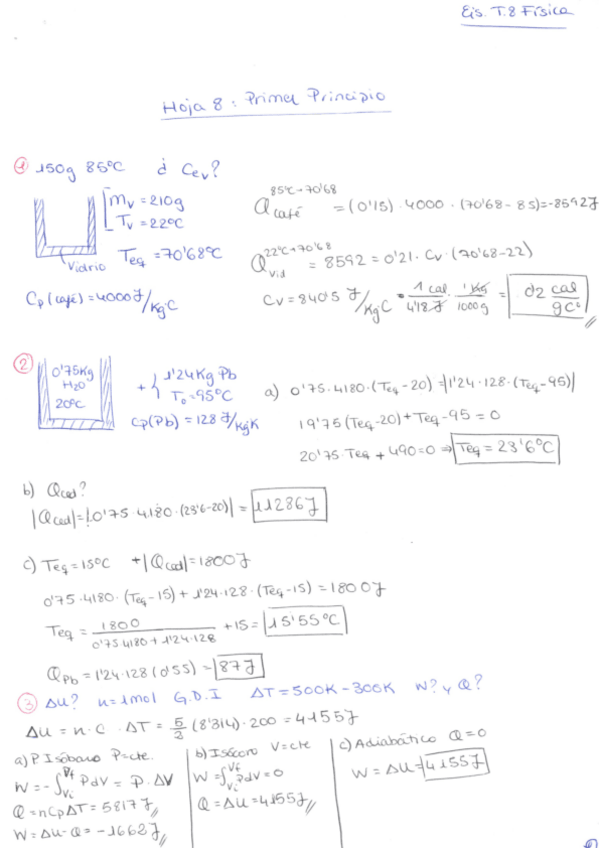 Ejs. T.8 Física
Hoja 8: Primer Principio
① 150g 85ºC ¿ Cev?
mv = 210g
Tv = 22ºC
Vidrio
Teq = 70'68ºC
Cp (café) = 4000 J/KgºC
Qcafé 85ºC→70'68 = (0'15) · 4000 · (70'68 - 85) = -8592 J
Qvid 22ºC→70'68 = 8592 = 0'21 · Cv · (70'68-22)
Cv = 840'5 J/KgºC · 1 cal/4'18 J · 1 Kg/1000g = 0'2 cal/gCº
②
0'75Kg
H2O
20ºC
+ { 1'24 Kg Pb
T0 = 95ºC
Cp(Pb) = 128 J/KgK
a) 0'75·4180·(Teq-20) = |1'24·128·(Teq-95)|
19'75(Teq-20) + Teq-95 = 0
20'75·Teq + 490 = 0 ⇒ Teq = 23'6ºC
b) Qced?
|Qced| = |0'75·4180·(23'6-20)| = 11286 J
c) Teq = 15ºC +|Qced| = 1800 J
0'75·4180·(Teq-15) + 1'24·128·(Teq-15) = 1800 J
Teq = 1800/0'75·4180+1'24·128 + 15 = 15'55ºC
QPb = 1'24·128(0'55) = 87 J
③ Δu? n=1mol G.D.I ΔT = 500K - 300K W? y Q?
Δu = n·C·ΔT = 5/2 (8'314)·200 = 4155 J
a) P Isóbaro P=cte.
W = -∫Vi Vf PdV = P·ΔV
Q = nCpΔT = 5817 J
W = Δu-Q = -1662 J
b) Isócoro V=cte
W = ∫Vi Vf PdV = 0
Q = Δu = 4155 J
c) Adiabático Q=0
W = Δu = 4155 J